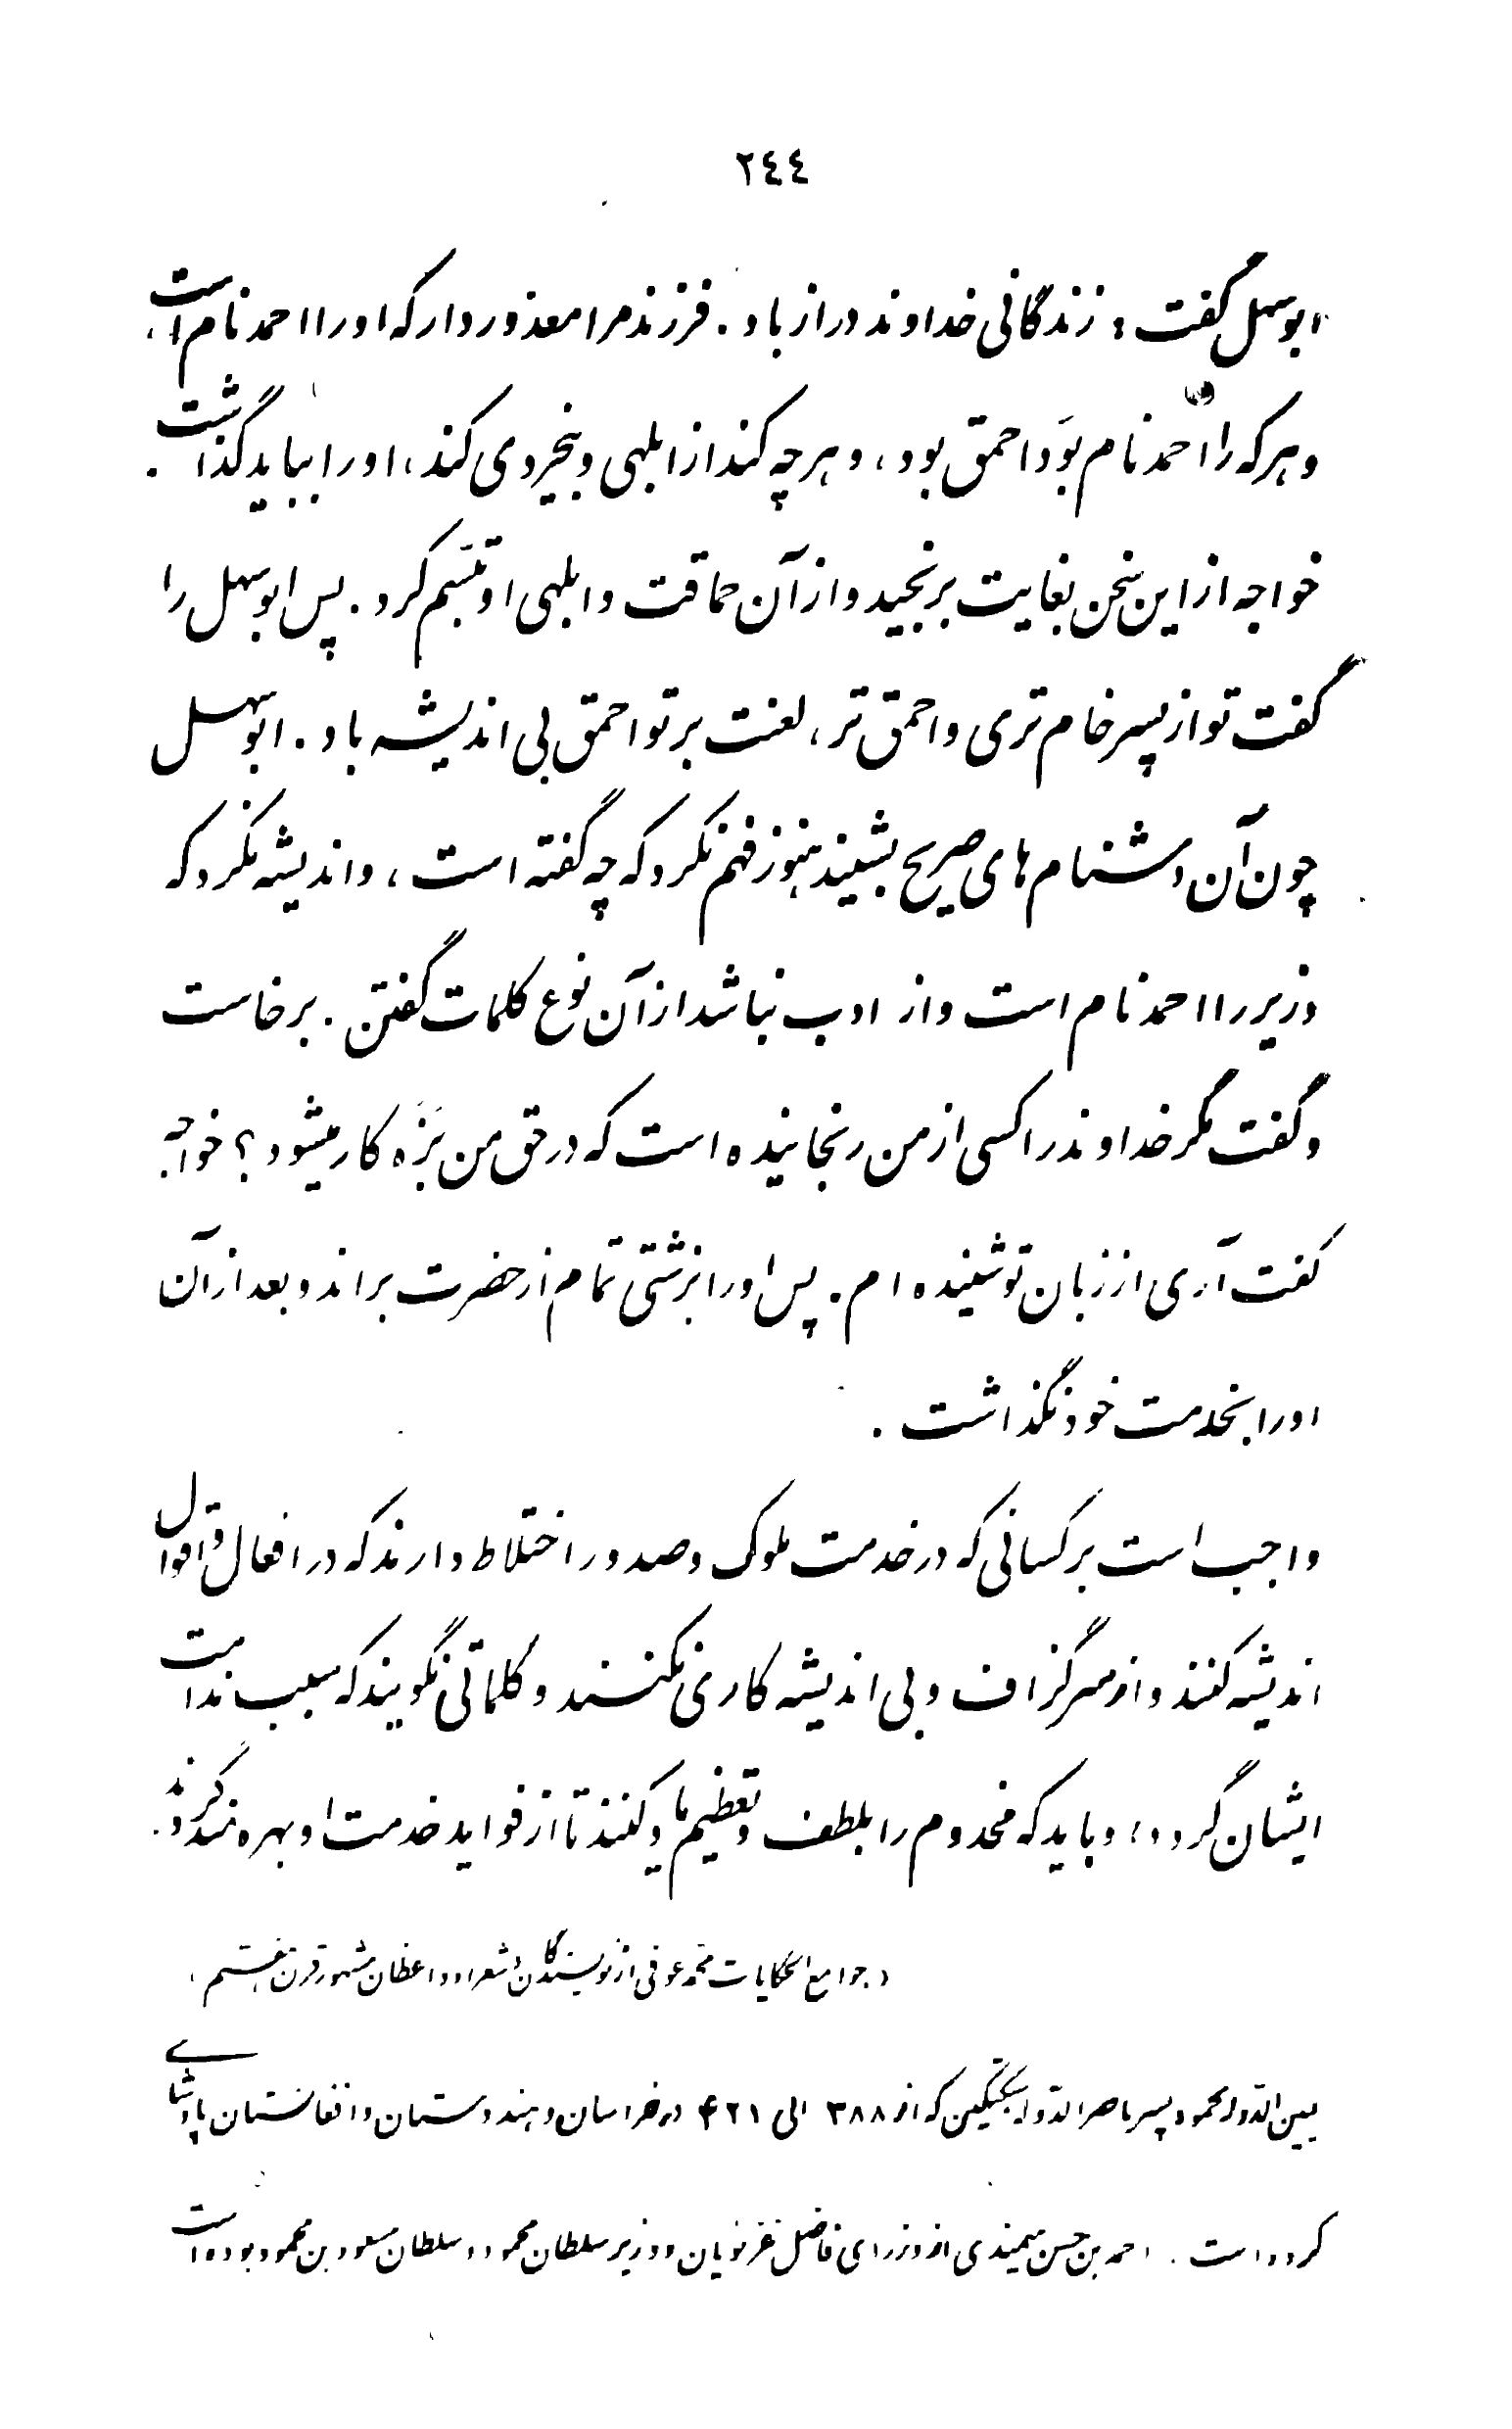 ٢٤٤
ابوسهل گفت : زندگانی خداوند دراز باد . فرزند مرا معذور دار که او را احمد نام است،
و هر که را احمد نام بوَد احمق بود، و هر چه کند از ابلهی و بیخردی کند، او را بباید گذاشت .
خواجه از این سخن بغایت برنجید و از آن حماقت و ابلهی او تبسّم کرد . پس ابوسهل را
گفت تو از پسر خام تری و احمق تر، لعنت بر تو احمق بی اندیشه باد . ابوسهل
چون آن دشنام های صریح بشنید هنوز فهم نکرد که چه گفته است، و اندیشه نکرد که
وزیر را احمد نام است و از ادب نباشد از آن نوع کلمات گفتن . برخاست
و گفت مگر خداوند را کسی از من رنجانیده است که در حق من بَزَه کار میشود؟ خواجه
گفت آری از زبان تو شنیده ام . پس او را بزشتی تمام از حضرت براند و بعد از آن
او را بخدمت خود نگذاشت .
واجب است بر کسانی که در خدمت ملوک و صدور اختلاط دارند که در افعال و اقوال
اندیشه کنند و از سر گزاف و بی اندیشه کاری نکنند و کلماتی نگویند که سبب ندامت
ایشان گردد؛ و باید که مخدوم را بلطف و تعظیم یاد کنند تا از فواید خدمت او بهره مند گردند .
(جوامع الحکایات محمّد عوفی از نویسندگان و شعرا و واعظان مشهور قرن هفتم)
یمین الدّوله محمود پسر ناصر الدّوله سبکتگین که از ۳۸۸ الی ۴۲۱ در خراسان و هندوستان و افغانستان پادشاهی
کرده است . احمد بن حسن میمندی از وزرای فاضل غزنویان و وزیر سلطان محمود و سلطان مسعود بن محمود بوده است